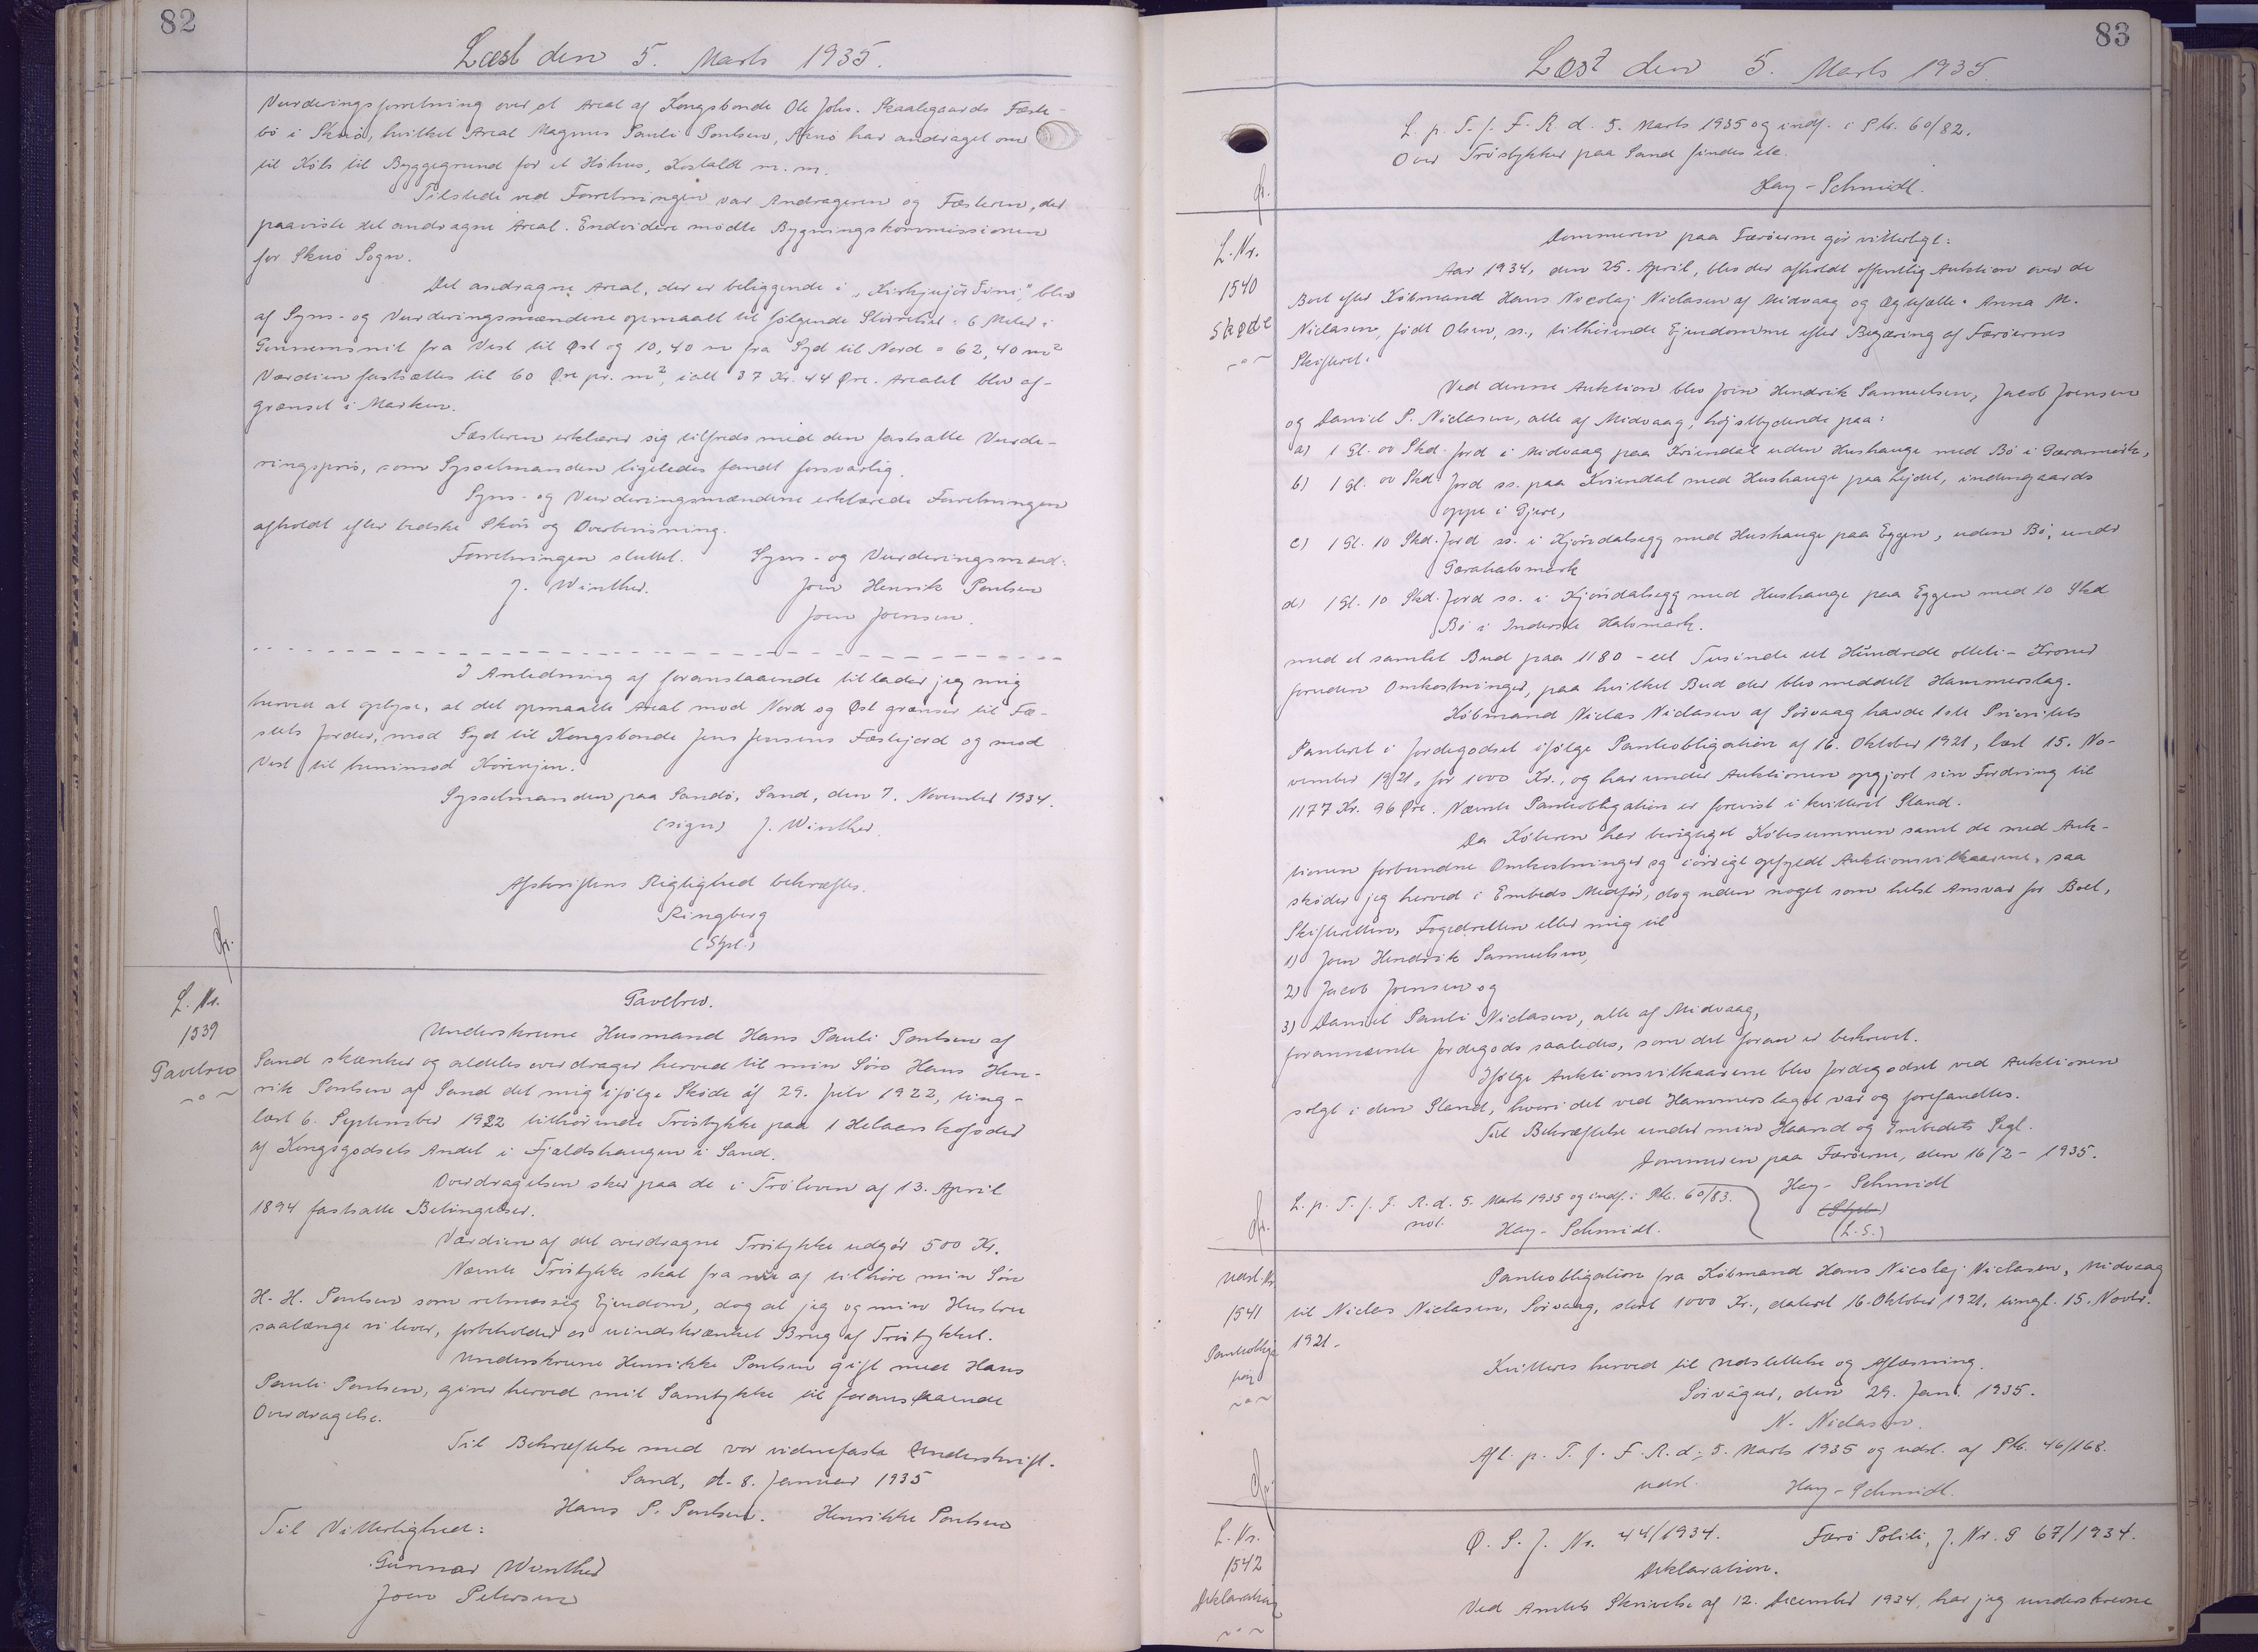 82
Læst den 5. Marts 1935.
Vurderingsforretning over et Areal af Kongsbonde Ole Johs. Skaalegaards Fæste-
bö i Skuö, hvilket Areal Magnus Pauli Poulsen, Skuö har andraget om
til Köb til Byggegrund for et Höhus, Kostald m.m.
Tilstede ved Forretningen var Andrageren og Fæsteren, der
paaviste det andragne Areal. Endvidere mödte Bygningskommissionen
for Skuö Sogn.
Det andragne Areal, der er beliggende i "Kirkjujördini", blev
af Syns- og Vurderingsmændene opmaalt til fölgende Störrelse: 6 Meter i
Gennemsnit fra Vest til Øst og 10,40 m fra Syd til Nord = 62,40 m²
Værdien fastsættes til 60 Øre pr. m², ialt 37 Kr. 44 Øre. Arealet blev af-
grænset i Marken.
Fæsteren erklærer sig tilfreds med den fastsatte Vurde-
ringspris, som Sysselmanden ligeledes fandt forsvarlig.
Syns- og Vurderingsmændene erklærede Forretningen
afholdt efter bedste Skön og Overbevisning.
Forretningen sluttet. Syns- og Vurderingsmænd:
J. Winther. Joen Henrik Poulsen
Joen Joensen.
I Anledning af foranstaaende tillader jeg mig
herved at oplyse, at det opmaalte Areal mod Nord og Øst grænser til Fæ-
stets Jorder, mod Syd til Kongsbonde Jens Jensens Fæstejord og mod
Vest til henimod Kørevejen.
Sysselmanden paa Sandö, Sand, den 7. November 1934.
(sign) J. Winther.
Afskriftens Rigtighed bekræftes.
Ringberg
(Stpl.)
L. Nr.
1539
Gavebrev
Gavebrev.
Underskrevne Husmand Hans Pauli Poulsen af
Sand skænker og aldeles overdrager herved til min Sön Hans Hen-
rik Poulsen af Sand det mig ifölge Sköde af 29. Juli 1922, ting-
læst 6. September 1922 tilhörende Tröstykke paa 1 Helaars kofoder
af Kongsgodsets Andel i Fjældshaugen i Sand.
Overdragelsen sker paa de i Tröloven af 13. April
1894 fastsatte Betingelser.
Værdien af det overdragne Tröstykke udgör 500 Kr.
Nævnte Tröstykke skal fra nu af tilhöre min Sön
H. H. Poulsen som retmæssig Ejendom, dog at jeg og min Hustru
saalænge vi lever, forbeholder os uindskrænket Brug af Tröstykket.
Underskrevne Henrikke Poulsen gift med Hans
Pauli Poulsen, giver herved mit Samtykke til foranstaaende
Overdragelse.
Til Bekræftelse med vor vidnefaste Underskrift.
Sand, d. 8. Januar 1935
Hans P. Poulsen. Henrikke Poulsen
Til Vitterlighed:
Gunnar Winther
Joen Petersen
83
Læst den 5. Marts 1935.
L. p. T. f. F. R. d. 5. Marts 1935 og indf. i Ptb. 60/82.
Over Tröstykker paa Sand findes ikke.
Hey-Schmidt.
L. Nr.
1540
Sködе
Dommeren paa Færöerne gör vitterligt:
Aar 1934, den 25. April, blev der afholdt offentlig Auktion over de
Boet efter Købmand Hans Nicolaj Niclasen af Midvaag og Ægtefælle Anna M.
Niclasen, födt Olsen, ss., tilhörende Ejendomme efter Begæring af Færöernes
Skifteret.
Ved denne Auktion blev Joen Hendrik Samuelsen, Jacob Joensen
og Daniel P. Niclasen, alle af Midvaag, höjstbydende paa:
a) 1 Gl. 00 Skd. Jord i Midvaag paa Kviendal uden Hushauge med Bö i Garamörk,
b) 1 Gl. 00 Skd. Jord ss. paa Kviendal med Hushauge paa Lejdet, indengaards
oppe i Gjere,
c) 1 Gl. 10 Skd. Jord ss. i Kjöndalsegg med Hushauge paa Eggen, uden Bö, under
Garahalsmark
d) 1 Gl. 10 Skd. Jord ss. i Kjöndalsegg med Hushauge paa Eggen med 10 Skd
Bö i Inderste Halsmark.
med et samlet Bud paa 1180 - et Tusinde et Hundrede otteti - Kroner
foruden Omkostninger, paa hvilket Bud der blev meddelt Hammerslag.
Købmand Niclas Niclasen af Sörvaag havde 1ste Prioritets
Panteret i Jordegodset ifölge Panteobligation af 16. Oktober 1921, læst 15. No-
vember 1921, for 1000 Kr., og har under Auktionen opgjort sin Fordring til
1177 Kr. 96 Øre. Nævnte Panteobligation er forevist i kvitteret Stand.
Da Köberen har berigtiget Köbesummen samt de med Auk-
tionen forbundne Omkostninger og iövrigt opfyldt Auktionsvilkaarene, saa
sköder jeg herved i Embeds Medför, dog uden noget som helst Ansvar for Boet,
Skifteretten, Fogedretten eller mig til
1) Joen Hendrik Samuelsen,
2) Jacob Joensen og
3) Daniel Pauli Niclasen, alle af Midvaag,
forannævnte Jordegods saaledes, som det foran er beskrevet.
Ifölge Auktionsvilkaarene blev Jordegodset ved Auktionen
solgt i den Stand, hvori det ved Hammerslaget var og forefandtes.
Til Bekræftelse under min Haand og Embedets Segl.
Dommeren paa Færöerne, den 16/2 - 1935.
Hey-Schmidt
(L.S.)
L. p. T. f. F. R. d. 5. Marts 1935 og indf. i Ptb. 60/83.
not. Hey-Schmidt.
Udsl. Nr
1541
Panteobliga-
tion
Panteobligation fra Købmand Hans Nicolaj Niclasen, Midvaag
til Niclas Niclasen, Sörvaag, stort 1000 Kr., dateret 16. Oktober 1921, tingl. 15. Novbr.
1921.
Kvitteres herved til Udslettelse og Aflæsning.
Sörvágur, den 29. Jan. 1935.
N. Niclasen.
Afl. p. T. f. F. R. d. 5. Marts 1935 og udsl. af Ptb. 46/168.
udsl. Hey-Schmidt.
L. Nr.
1542
Deklaration
Ø. S. J. Nr. 44/1934. Færö Politi, J. Nr. S 67/1934.
Deklaration.
Ved Amtets Skrivelse af 12. December 1934, har jeg underskrevne